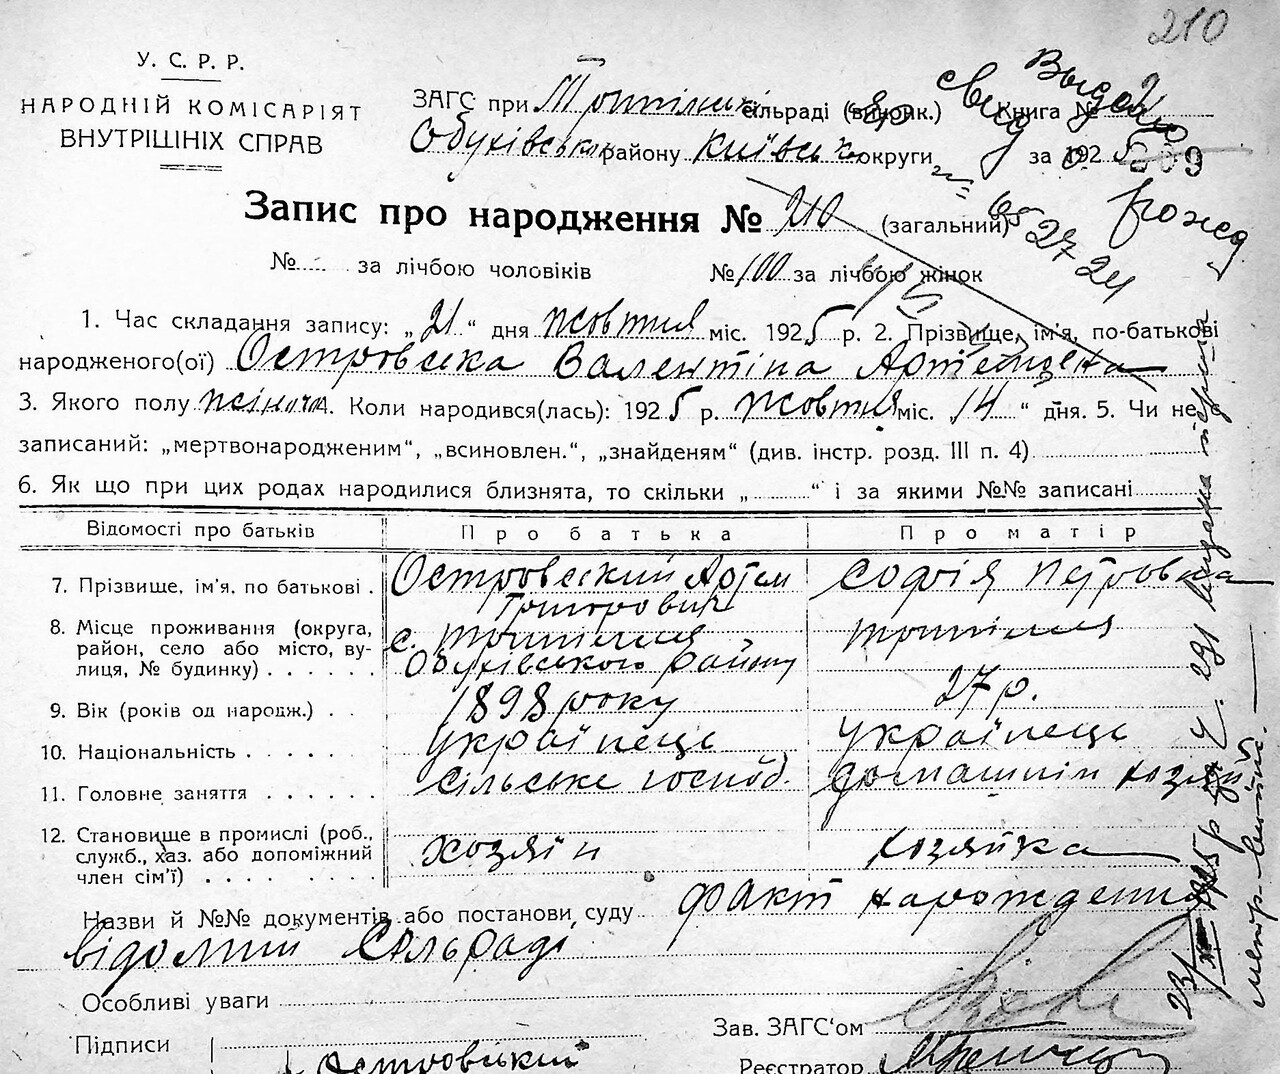 210
У. С. Р. Р.
НАРОДНІЙ КОМІСАРІЯТ
ВНУТРІШНІХ СПРАВ
ЗАГС при Трипільські сільраді (виконк.) Книга №
Обухівського району Київськ округи за 1925 209
Выдано
свид о
рожд
№ 652724
Запис про народження № 210 (загальний)
№ за лічбою чоловіків № 100 за лічбою жінок
1. Час складання запису: „21“ дня жовтня міс. 1925 р. 2. Прізвище, ім'я, по-батькові
народженого(ої) Островська Валентіна Артемівна
3. Якого полу жіноча 4. Коли народився(лась): 1925 р. жовтня міс. „14“ дня. 5. Чи не
записаний: „мертвонародженим“, „всиновлен.“, „знайденям“ (див. інстр. розд. III п. 4)
6. Як що при цих родах народилися близнята, то скільки „ “ і за якими №№ записані
Відомості про батьків Про батька Про матір
7. Прізвище, ім'я, по батькові . Островский Артем Софія Петровна
Григрович
8. Місце проживання (округа, с. Трипілля Трипілля
район, село або місто, ву-
лиця, № будинку) . . . . . . Обухівського району
9. Вік (років од народж.) . . 1898 року 27 р.
10. Національність . . . . . . українець українець
11. Головне заняття . . . . . . сільське господ. домашнім хозяй
12. Становище в промислі (роб.,
служб., хаз. або допоміжний хозяїн хозяйка
член сім'ї) . . . . . . .
Назви й №№ документів або постанови суду факт нарождения
відомий Сільраді
Особливі уваги
Зав. ЗАГС'ом
Підписи Островський
Реєстратор
23/ 1925 р